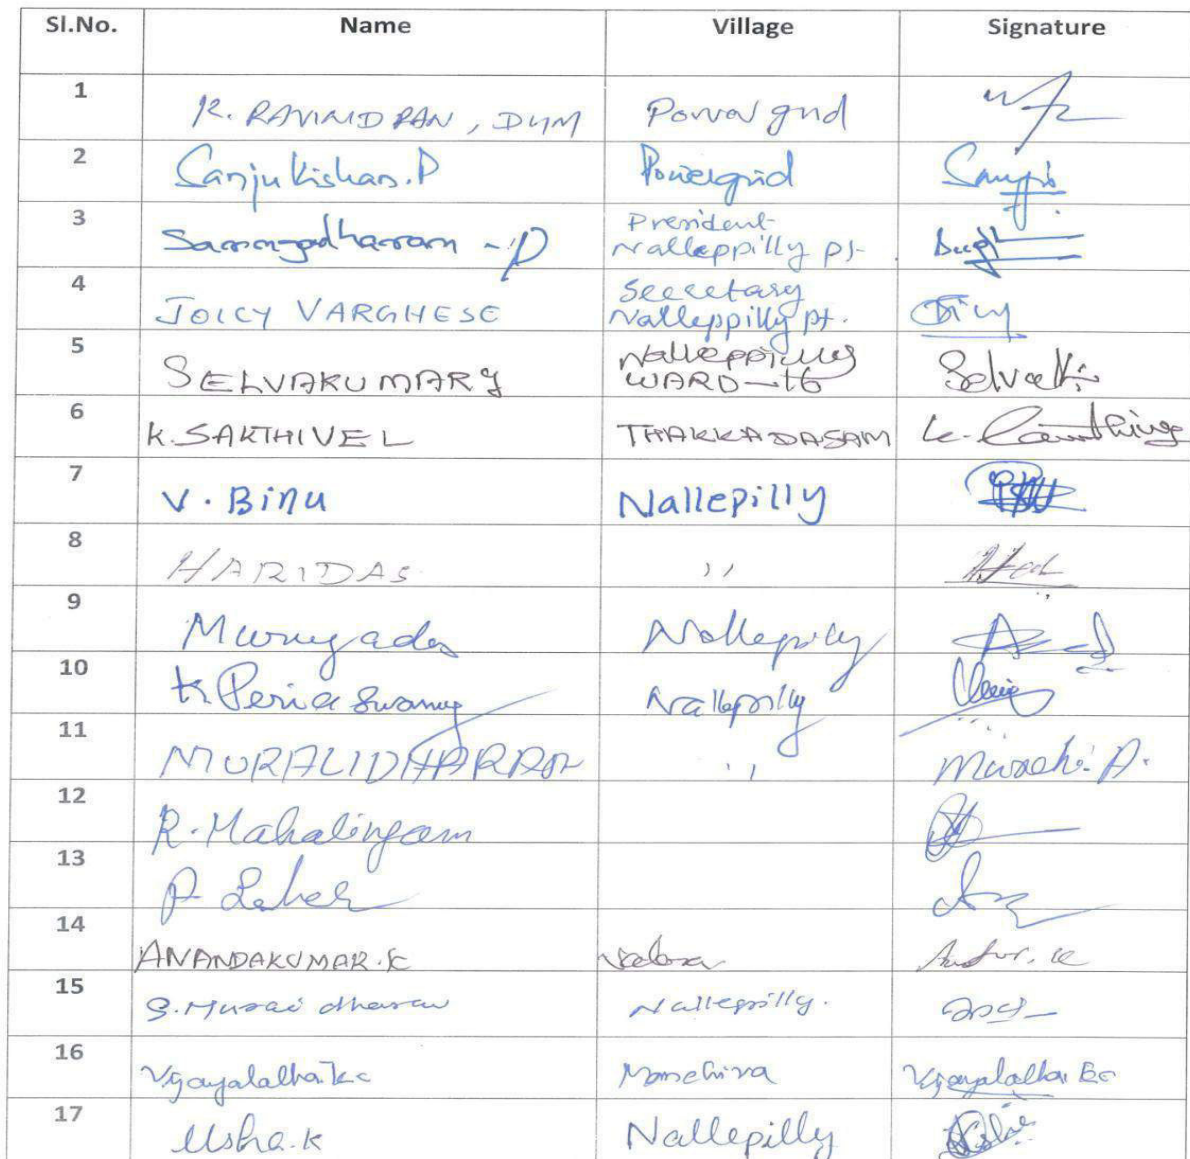 Sl.No. Name Village Signature
1 K. RAVINDRAN, DGM Powergrid
2 Sanju Kishan.P Powergrid Sanju
3 Sarangadharan - P President
Nalleppilly pt.
4 JOICY VARGHESE Secretary
Nalleppilly pt. Joicy
5 SELVAKUMARY Nalleppilly
WARD-16
6 K. SAKTHIVEL THAKKADASAM
7 V. Binu Nallepilly
8 HARIDAS ,,
9 Murugadas Nallepilly
10 K. Periaswamy Nallepilly
11 MURALIDHARRAN ,,
12 R. Mahalingam
13
14 ANANDAKUMAR.K
15 S. Muralidharan Nallepilly.
16 Vijayalatha.k.c Vijayalatha kc
17 Usha.K Nallepilly